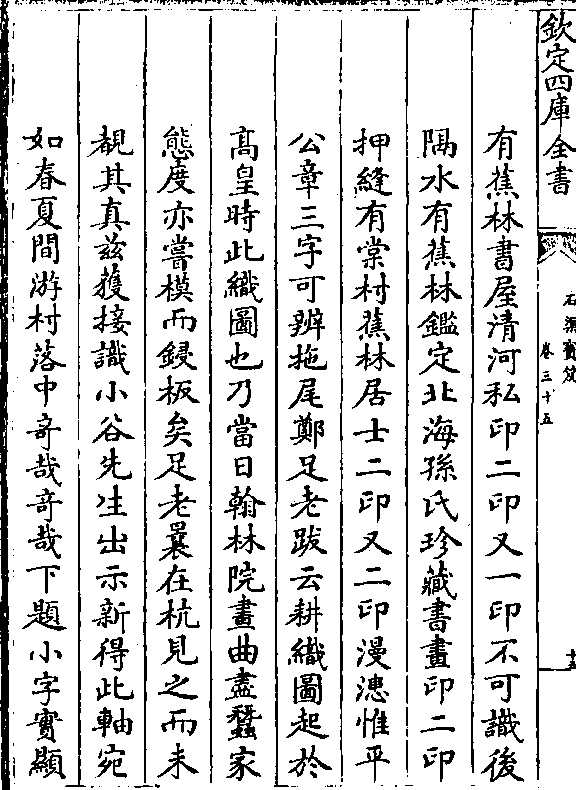 欽定四庫全書
石渠寶笈
卷三十五
十五
有蕉林書屋清河私印二印又一印不可識後
隔水有蕉林鑑定北海孫氏珍藏書畫印二印
押縫有棠村蕉林居士二印又二印漫漶惟平
公章三字可辨拖尾鄭足老跋云耕織圖起於
高皇時此織圖也乃當日翰林院畫曲盡蠶家
態度亦嘗模而鋟板矣足老曩在杭見之而未
覩其真兹獲接識小谷先生出示新得此軸宛
如春夏間游村落中竒哉竒哉下題小字實顯